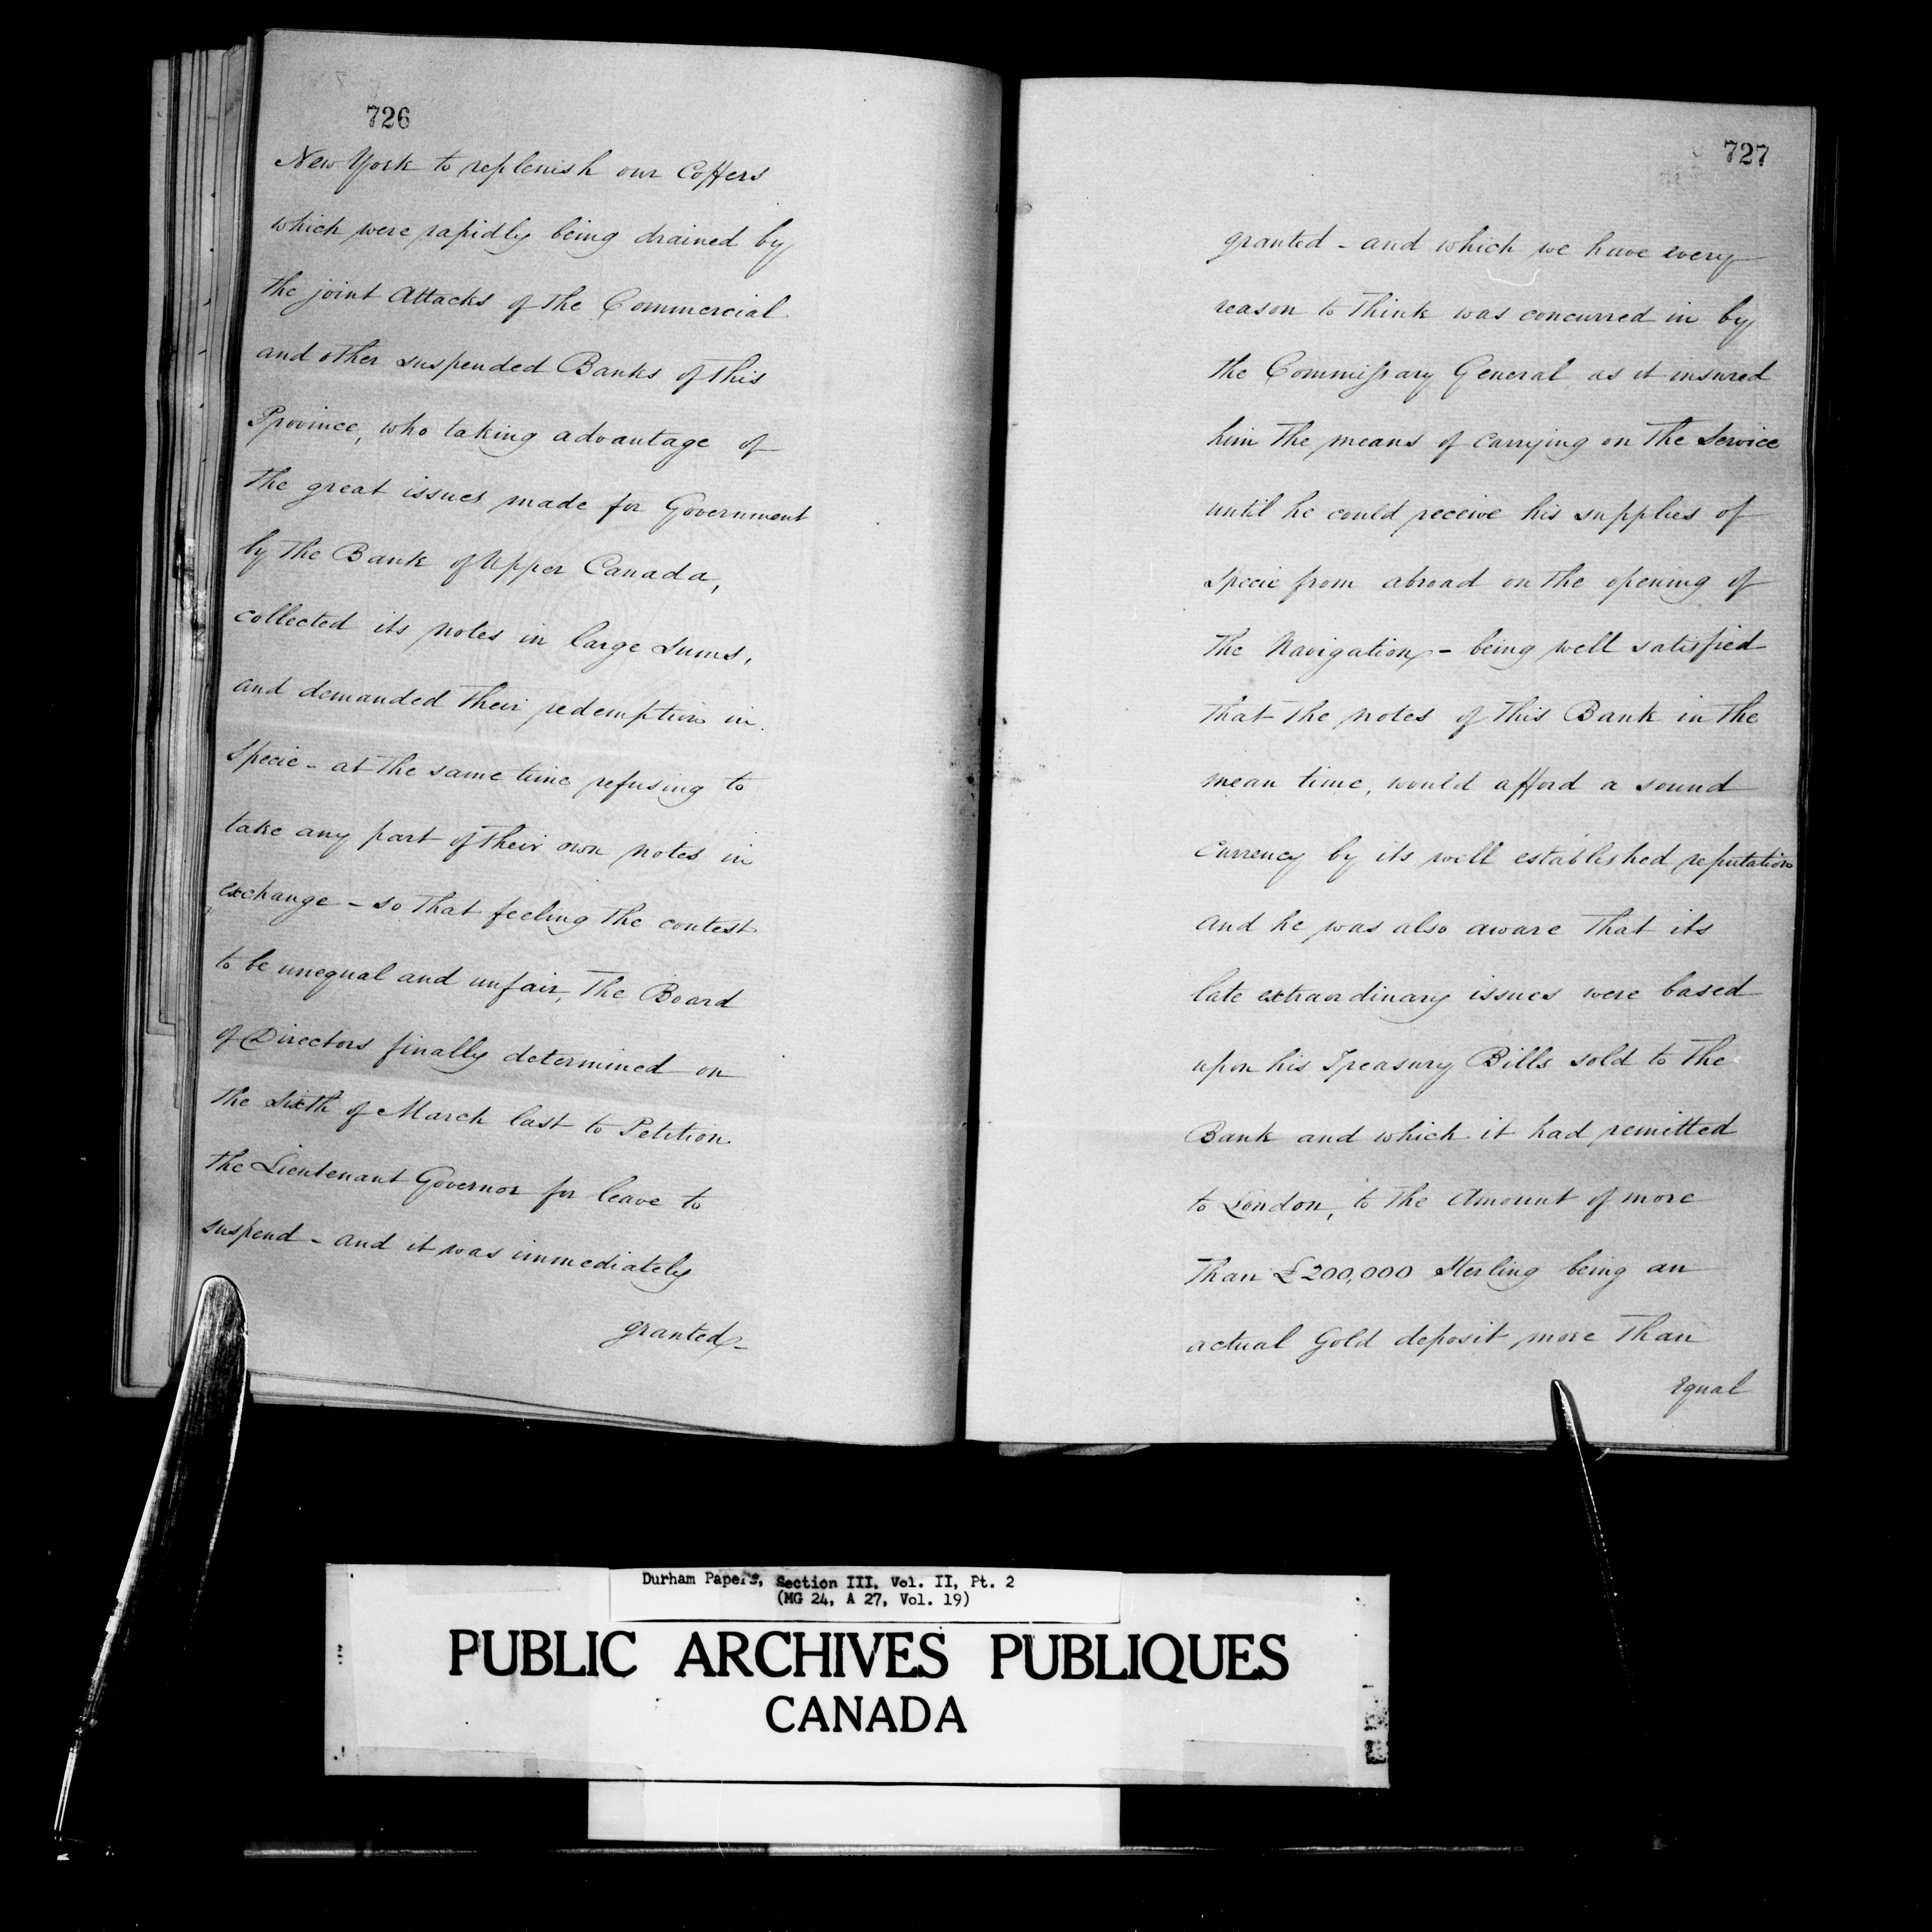 726
New York to replenish our Coffers
which were rapidly being drained by
the joint Attacks of the Commercial
and other suspended Banks of this
Province, who taking advantage of
the great issues made for Government
by the Bank of Upper Canada,
collected its notes in large sums,
and demanded their redemption in
Specie - at the same time refusing to
take any part of their own notes in
exchange - so that feeling the contest
to be unequal and unfair, the Board
of Directors finally determined on
the Sixth of March last to Petition
the Lieutenant Governor for leave to
suspend - and it was immediately
granted -
727
granted - and which we have every
reason to think was concurred in by
the Commissary General as it insured
him the means of carrying on the Service
until he could receive his supplies of
Specie from abroad on the opening of
the Navigation - being well satisfied
that the notes of this Bank in the
mean time, would afford a sound
currency by its well established reputation
and he was also aware that its
late extraordinary issues were based
upon his Treasury Bills sold to the
Bank and which it had remitted
to London, to the Amount of more
than £200,000 Sterling being an
actual Gold deposit more than
Equal
Durham Papers, Section III. Vol. II, Pt. 2
(MG 24, A 27, Vol. 19)
PUBLIC ARCHIVES PUBLIQUES
CANADA